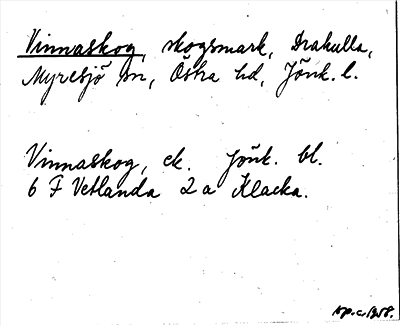 Vinnaskog, skogsmark, Drakulla,
Myresjö sn, Östra hd, Jönk. l.
Vinnaskog, ek. Jönk. bl.
6 F Vetlanda 2 a Klacka.